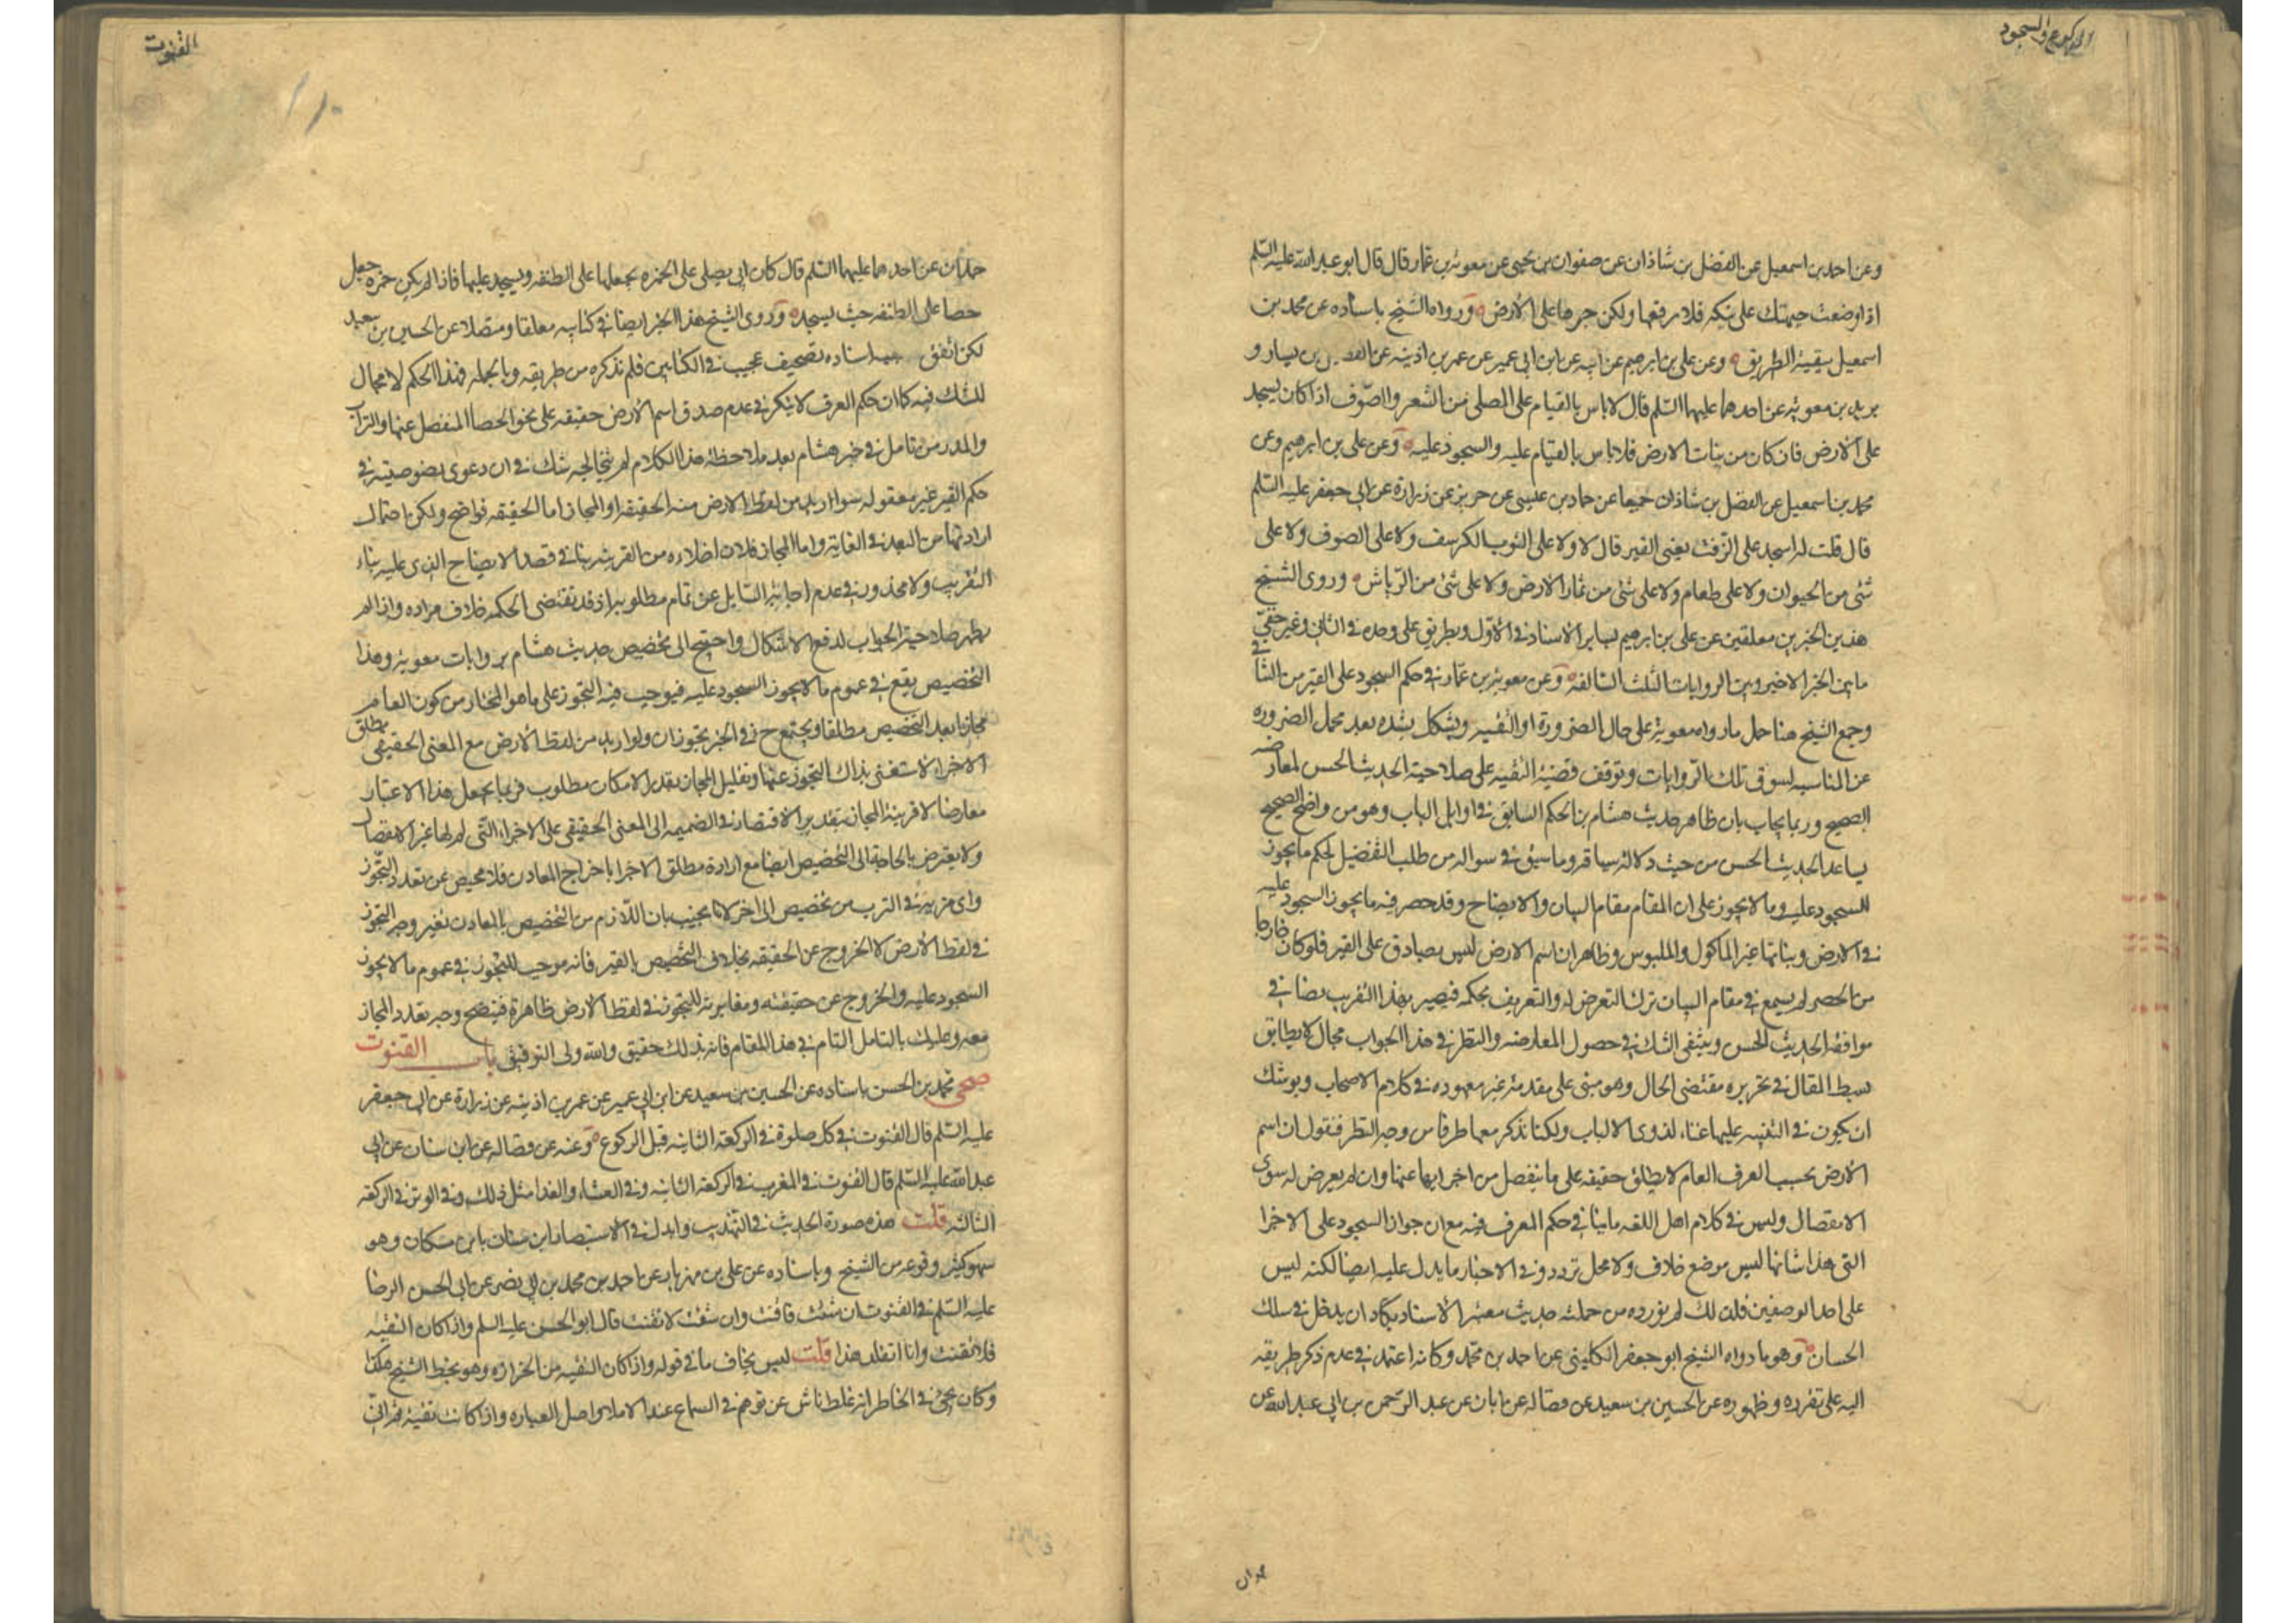 الركوع والسجود
وعن احمد بن اسمعيل عن الفضل بن شاذان عن صفوان بن يحيى عن معوية بن عمار قال قال ابو عبد الله عليه السلم
اذا وضعت جبهتك على نبكة فلا ترفعها ولكن جرها على الأرض ورواه الشيخ باسناده عن محمد بن
اسمعيل ببقية الطريق وعن علي بن ابرهيم عن ابيه عن ابن ابي عمير عن عمر بن اذينة عن الفضيل بن يسار و
بريد بن معوية عن احدهما عليهما السلم قال لا باس بالقيام على المصلى من الشعر والصوف اذا كان يسجد
على الأرض فان كان من نبات الارض فلا باس بالقيام عليه والسجود عليه وعن علي بن ابرهيم وعن
محمد بن اسمعيل عن الفضل بن شاذان جميعا عن حماد بن عيسى عن حريز عن زرارة عن ابي جعفر عليه السلم
قال قلت له اسجد على الزفت يعني القير قال لا ولا على الثوب الكرسف ولا على الصوف ولا على
شئ من الحيوان ولا على طعام ولا على شئ من ثمار الأرض ولا على شئ من الرياش وروى الشيخ
هذين الخبرين معلقين عن علي بن ابرهيم بساير الاسناد في الأول وبطريق علي وحده في الثاني وغير خفي
ما بين الخبر الاخير وبين الروايات الثلث السالفة وعن معوية بن عمار في حكم السجود على القير من التنافي
وجمع الشيخ هنا حمل ما رواه معوية على حال الضرورة او التقية ويشكل بشدة بعد محمل الضروره
عن المناسبه لسوق تلك الروايات وتوقف قضية التقيه على صلاحية الحديث الحسن لمعارضه
الصحيح وربما يجاب بان ظاهر حديث هشام بن الحكم السابق في اوايل الباب وهو من واضح الصحيح
يساعد الحديث الحسن من حيث دلالة سياقه وما سبق في سواله من طلب التفصيل لحكم ما يجوز
السجود عليه وما لا يجوز على ان المقام مقام البيان والايضاح وقد حصر فيه ما يجوز السجود عليه
في الارض ونباتها غير الماكول والملبوس وظاهر ان اسم الارض ليس بصادق على القير فلو كان خارجا
من الحصر لم يسمع في مقام البيان ترك التعرض له والتعريف بحكمه فيصير بهذا التقريب نصا في
موافقة الحديث الحسن وينتفي الشك في حصول المعارضه والنظر في هذا الجواب مجال لا يطابق
بسط المقال في تحريره مقتضى الحال وهو مبني على مقدمة غير معهوده في كلام الاصحاب ويوشك
ان يكون في التنبيه عليها غناء لذوي الالباب ولكنا نذكر معها طرفا من وجه النظر فنقول ان اسم
الأرض بحسب العرف العام لا يطلق حقيقه على ما ينفصل من اجزايها عنها وان لم يعرض له سوى
الانفصال وليس في كلام اهل اللغه ما ينافي حكم العرف فيه مع ان جواز السجود على الاجزا
التي هذا شانها ليس موضع خلاف ولا محل تردد وفي الاخبار ما يدل عليه ايضا لكنه ليس
على احد الوصفين فلذلك لم نورده من جملته حديث معتبر الأسناد يكاد ان يدخل في سلك
الحسان وهو ما رواه الشيخ ابو جعفر الكليني عن احمد بن محمد وكانه اعتمد في عدم ذكر طريقه
اليه على تفرده وظهوره عن الحسين بن سعيد عن فضاله عن ابان عن عبد الرحمن بن ابي عبد الله عن
حمران
القنوت
حمران عن احدهما عليهما السلم قال كان ابي يصلى على الخمره يجعلها على الطنفسه ويسجد عليها فاذا لم يكن خمره جعل
حصا على الطنفسه حيث يسجد وروى الشيخ هذا الخبر ايضا في كتابيه معلقا ومتصلا عن الحسين بن سعيد
لكن اتفق اسناده تصحيف عجيب في الكتابين فلم نذكره من طريقه وبالجمله فهذا الحكم لا مجال
للشك فيه كما ان حكم العرف لا ينكر في عدم صدق اسم الأرض حقيقه على نحو الحصا المنفصل عنها والتراب
والمدر ومن تامل في خبر هشام بعد ملاحظة هذا الكلام لم يتخالجه شك في ان دعوى نصوصيته في
حكم القير غير معقوله سوا اريد من لفظ الارض منه الحقيقه او المجاز اما الحقيقه فواضح ولكن احتمال
ارادتها من البعد في الغاية واما المجاز فلان اخلاءه من القرينه ينافي قصد الايضاح الذي عليه بناء
التقريب ولا محذور في عدم اجابة السايل عن تمام مطلوبه اذ قد تقتضي الحكمه خلاف مراده واذا لم
يظهر صلاحية الجواب لدفع الاشكال واحتيج الى تخصيص حديث هشام بروايات معوية وهذا
التخصيص يقع في عموم ما لا يجوز السجود عليه فيوجب فيه التجوز على ما هو المختار من كون العام
مجازا بعد التخصيص مطلقا ويجتمع ح في الخبر تجوزان ولو اريد من لفظ الأرض مع المعنى الحقيقي مطلق
الاجزاء لاستغنى بذاك التجوز عنها وتقليل المجاز بقدر الامكان مطلوب فربما يجعل هذا الاعتبار
معارضا لاقربية المجاز بتقدير الاقتصار في الضميمه الى المعنى الحقيقي على الاجزاء التي لم لها غير الانفصال
ولا يعترض بالحاجة الى التخصيص ايضا مع ارادة مطلق الاجزا باخراج المعادن فلا محيص عن تعدد التجوز
واي مزية في الترب من تخصيص الى اخر لانا نجيب بان اللازم من التخصيص بالمعادن تغير وجه التجوز
في لفظ الأرض لا الخروج عن الحقيقه بخلاف التخصيص بالقير فانه موجب للتجوز في عموم ما لا يجوز
السجود عليه والخروج عن حقيقته ومغايرته للتجوز في لفظ الأرض ظاهرة فيتضح وجه تعدد المجاز
معه وعليك بالتامل التام في هذا المقام فانه بذلك حقيق والله ولي التوفيق باب القنوت
صحى محمد بن الحسن باسناده عن الحسين بن سعيد عن ابن ابي عمير عن عمر بن اذينه عن زرارة عن ابي جعفر
عليه السلم قال القنوت في كل صلوة في الركعة الثانيه قبل الركوع وعنه عن فضاله عن ابن سنان عن ابي
عبد الله عليه السلم قال القنوت في المغرب في الركعة الثانيه وفي العشاء والغداة مثل ذلك وفي الوتر في الركعة
الثالثه قلت هذه صورة الحديث في التهذيب وابدل في الاستبصار ابن سنان بابن مسكان وهو
سهو كثير وقوعه من الشيخ وباسناده عن علي بن مهزيار عن احمد بن محمد بن ابي نصر عن ابي الحسن الرضا
عليه السلم في القنوت ان شئت فاقنت وان شئت لا تقنت قال ابو الحسن عليه السلم واذا كان التقيه
فلا تقنت وانا اتقلد هذا قلت ليس بخاف ما في قوله واذا كان التقيه من الحزازه وهو بخط الشيخ هكذا
وكان يجئ في الخاطر انه غلط ناش عن توهم في السماع عند الاملا واصل العباره واذا كانت تقية ثم اني